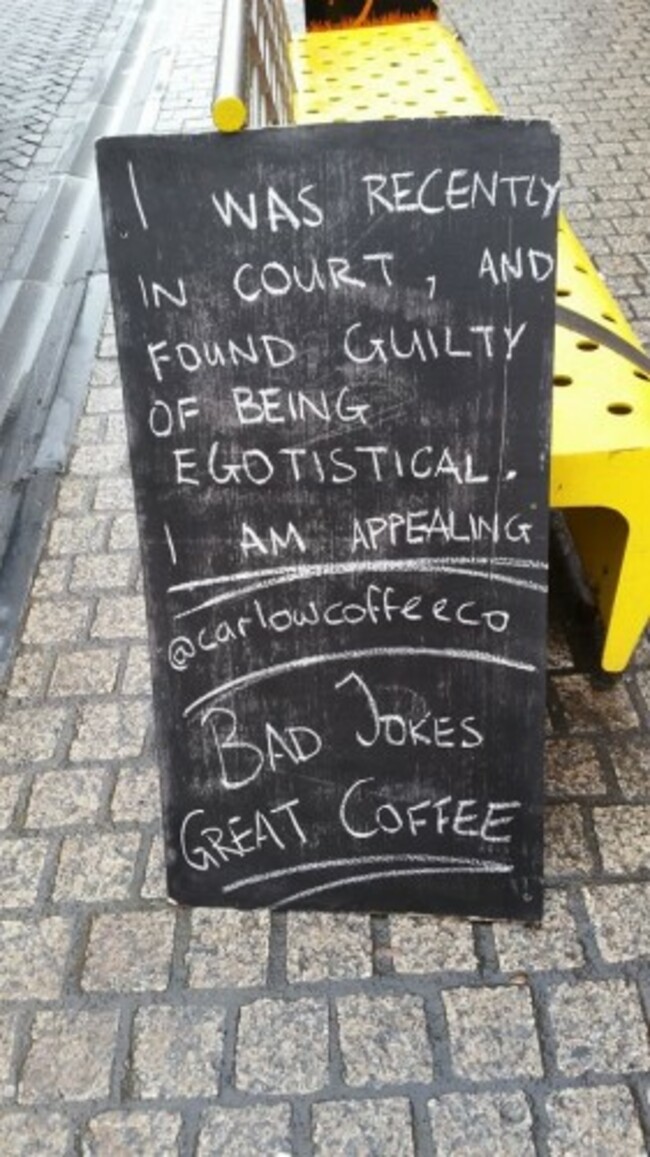 I WAS RECENTLY
IN COURT, AND
FOUND GUILTY
OF BEING
EGOTISTICAL.
I AM APPEALING
@carlowcoffeeco
BAD JOKES
GREAT COFFEE